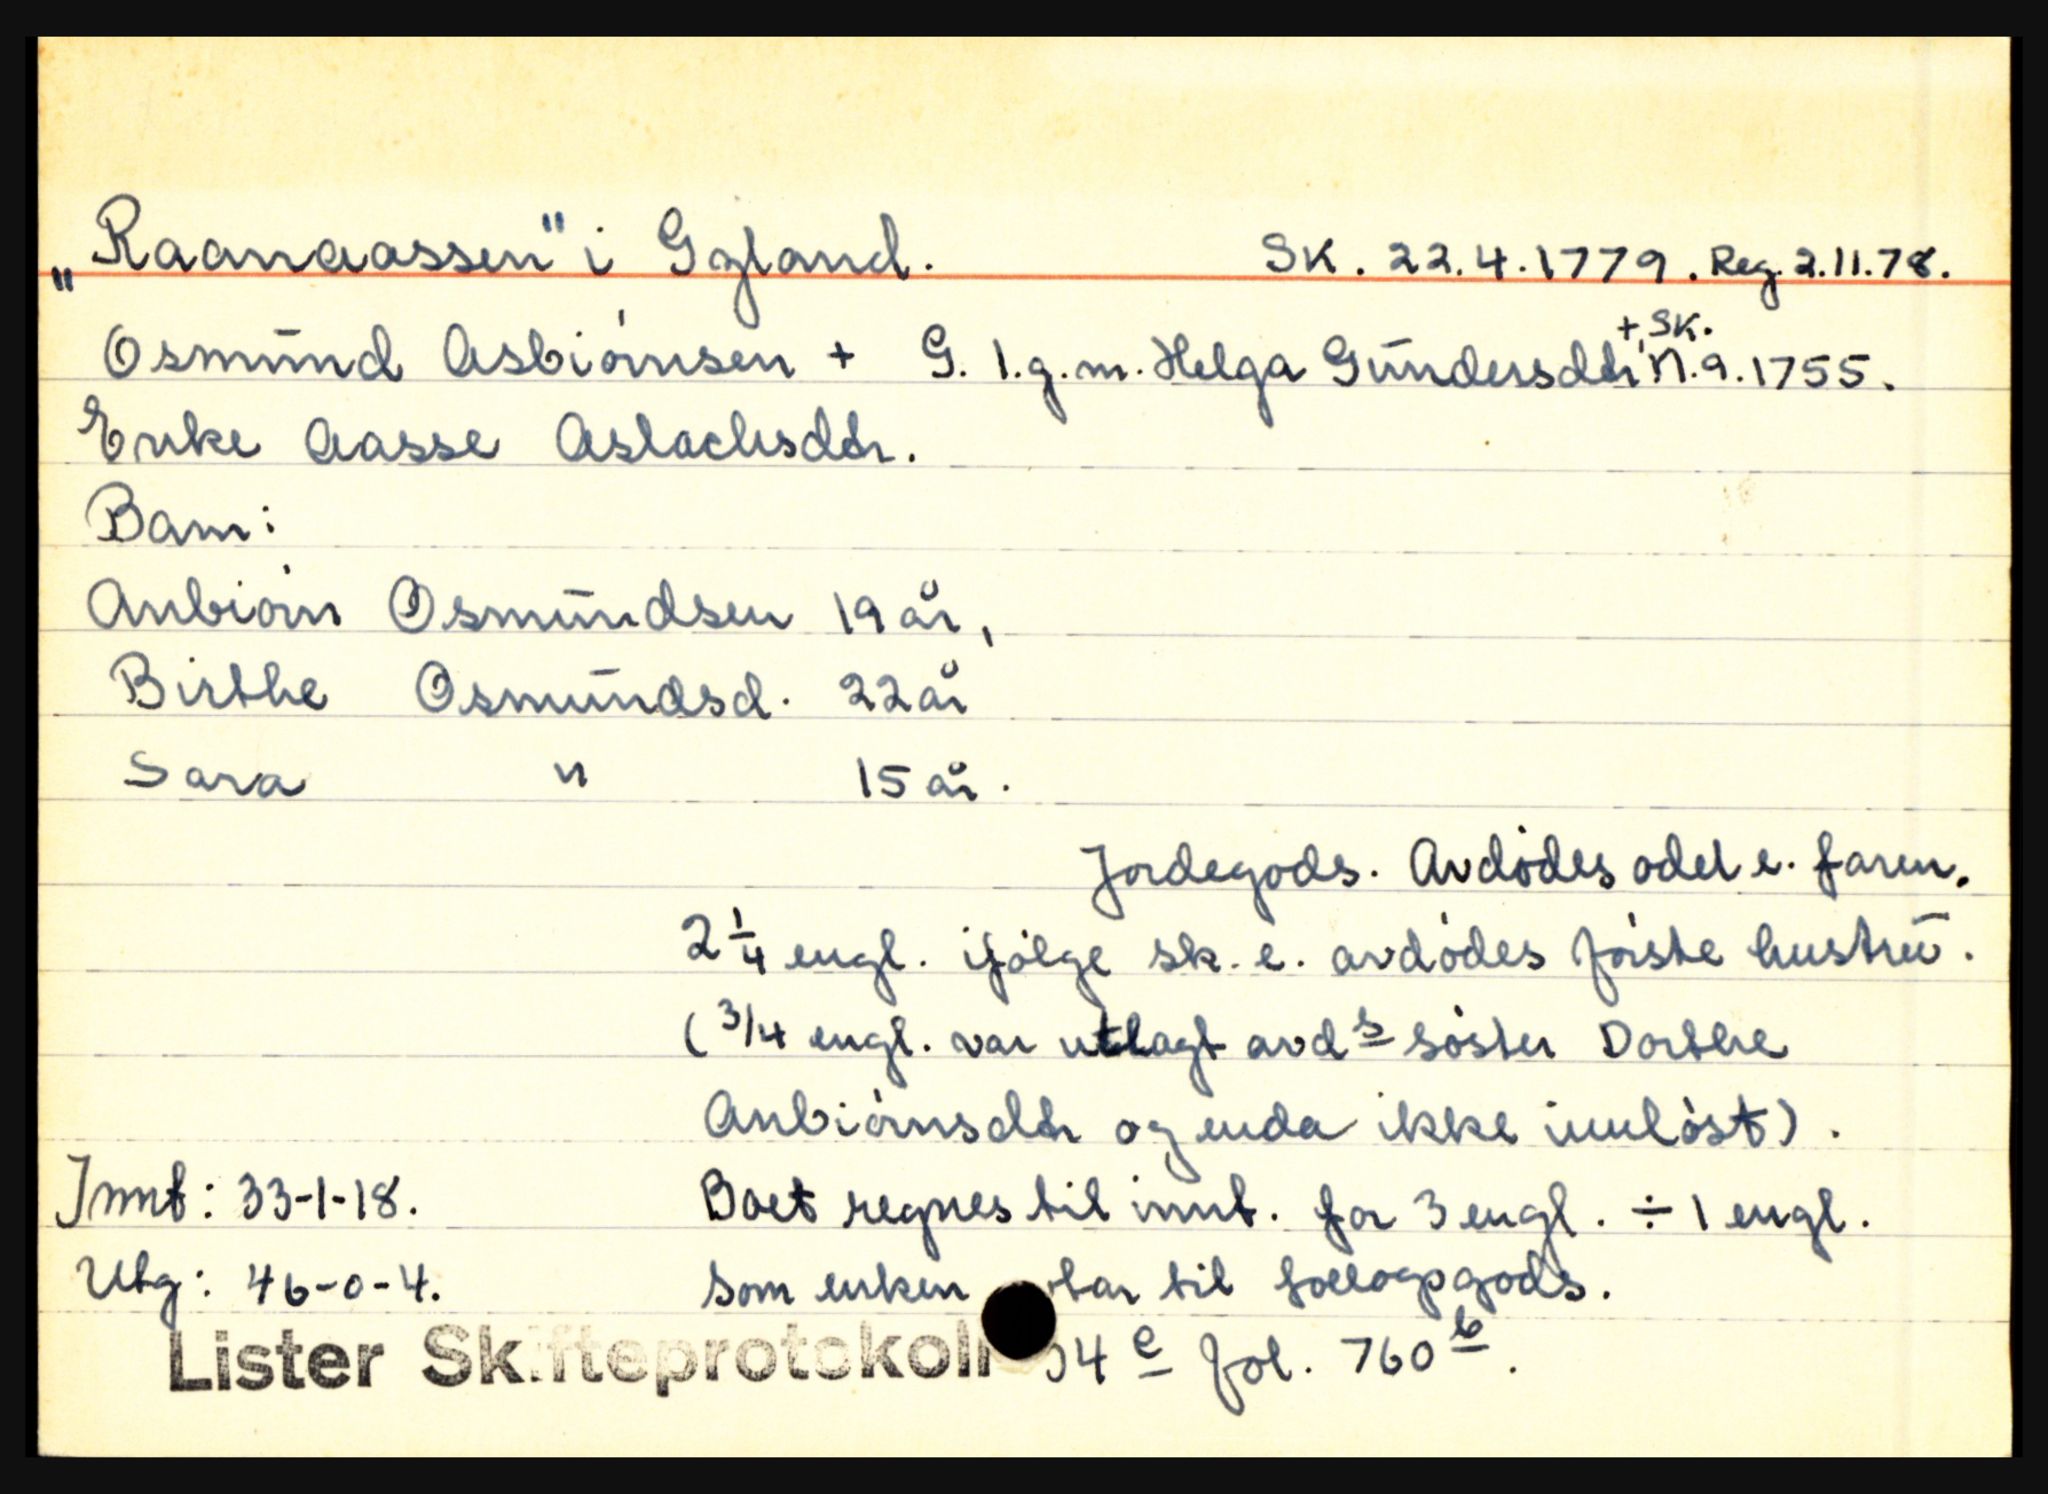 „Raanaassen" i Gyland. SK. 22.4.1779. Reg. 2.11.78.
Osmund Asbiørnsen + G. 1.g.m. Helga Gundersdtr +, SK. 11.9.1755.
Enke Aasse Aslachsdtr.
Barn:
Anbiørn Osmundsen 19 år,
Birthe Osmundsd. 22 år
Sara " 15 år.
Jordegods. Avdødes odel e. faren.
2 1/4 engl. ifølge sk. e. avdødes første hustru.
(3/4 engl. var utlagt avds søster Dorthe
Anbiørnsdtr og enda ikke innløst).
Innt: 33-1-18. Boet regnes til innt. for 3 engl. ÷ 1 engl.
Utg: 46-0-4. som enken til foelogsgods.
Lister Skifteprotokoll 4 e fol. 760 b.